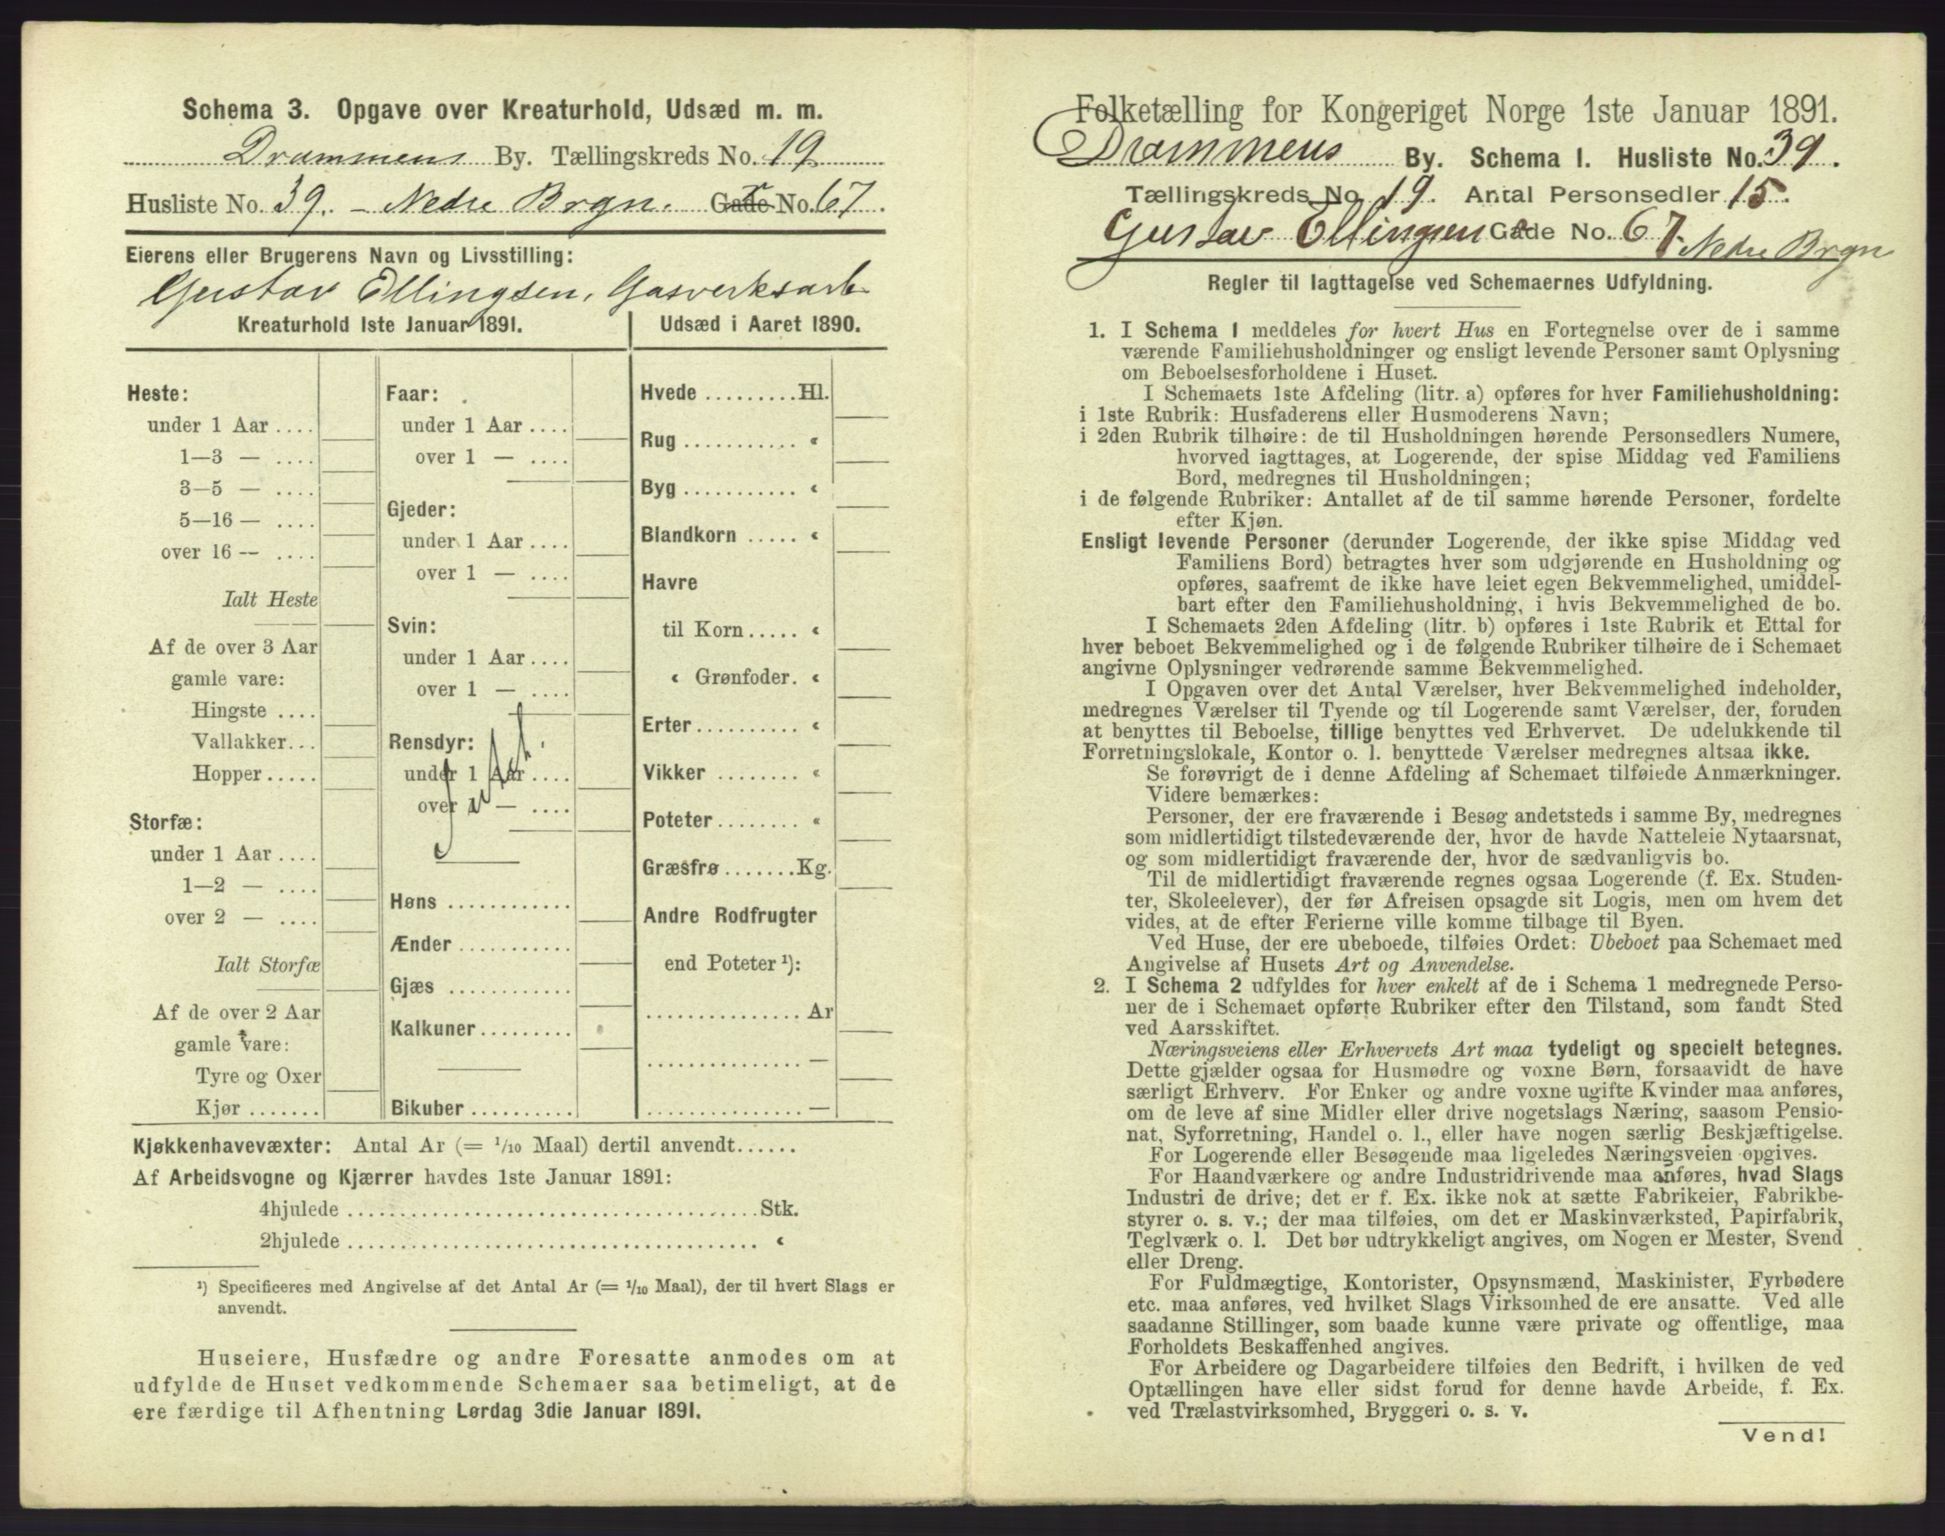 Schema 3. Opgave over Kreaturhold, Udsæd m. m.
Drammens By. Tællingskreds No. 19
Husliste No. 39. - Nedre Brgn. Gade No. 67.
Eierens eller Brugerens Navn og Livsstilling:
Gustav Ellingsen, Gasverksarb
Kreaturhold 1ste Januar 1891.
Heste:
under 1 Aar ....
1—3 — ....
3—5 — ....
5—16 — ....
over 16 — ....
Ialt Heste
Af de over 3 Aar
gamle vare:
Hingste ....
Vallakker...
Hopper.....
Storfæ:
under 1 Aar ....
1—2 — ....
over 2 — ....
Ialt Storfæ
Af de over 2 Aar
gamle vare:
Tyre og Oxer
Kjør .......
Faar:
under 1 Aar ....
over 1 — ....
Gjeder:
under 1 Aar ....
over 1 — ....
Svin:
under 1 Aar....
over 1 — ....
Rensdyr:
under 1 Aar ....
over 1 — ....
Høns ............
Ænder ...........
Gjæs ............
Kalkuner.........
Bikuber ..........
Udsæd i Aaret 1890.
Hvede .........Hl.
Rug ........... “
Byg ........... “
Blandkorn ..... “
Havre
til Korn..... “
“ Grønfoder. “
Erter.......... “
Vikker ........ “
Poteter........ “
Græsfrø .......Kg.
Andre Rodfrugter
end Poteter ¹):
............... Ar
............... —
............... —
Kjøkkenhavevæxter: Antal Ar (= 1/10 Maal) dertil anvendt......
Af Arbeidsvogne og Kjærrer havdes 1ste Januar 1891:
4hjulede ....................................... Stk.
2hjulede ....................................... “
¹) Specificeres med Angivelse af det Antal Ar (= 1/10 Maal), der til hvert Slags er
anvendt.
Huseiere, Husfædre og andre Foresatte anmodes om at
udfylde de Huset vedkommende Schemaer saa betimeligt, at de
ere færdige til Afhentning Lørdag 3die Januar 1891.
Folketælling for Kongeriget Norge 1ste Januar 1891.
Drammens By. Schema 1. Husliste No. 39.
Tællingskreds No. 19. Antal Personsedler 15.
Gustav Ellingsen Gade No. 67. Nedre Brgn
Regler til Iagttagelse ved Schemaernes Udfyldning.
1. I Schema 1 meddeles for hvert Hus en Fortegnelse over de i samme
værende Familiehusholdninger og ensligt levende Personer samt Oplysning
om Beboelsesforholdene i Huset.
I Schemaets 1ste Afdeling (litr. a) opføres for hver Familiehusholdning:
i 1ste Rubrik: Husfaderens eller Husmoderens Navn;
i 2den Rubrik tilhøire: de til Husholdningen hørende Personsedlers Numere,
hvorved iagttages, at Logerende, der spise Middag ved Familiens
Bord, medregnes til Husholdningen;
i de følgende Rubriker: Antallet af de til samme hørende Personer, fordelte
efter Kjøn.
Ensligt levende Personer (derunder Logerende, der ikke spise Middag ved
Familiens Bord) betragtes hver som udgjørende en Husholdning og
opføres, saafremt de ikke have leiet egen Bekvemmelighed, umiddel-
bart efter den Familiehusholdning, i hvis Bekvemmelighed de bo.
I Schemaets 2den Afdeling (litr. b) opføres i 1ste Rubrik et Ettal for
hver beboet Bekvemmelighed og i de følgende Rubriker tilhøire de i Schemaet
angivne Oplysninger vedrørende samme Bekvemmelighed.
I Opgaven over det Antal Værelser, hver Bekvemmelighed indeholder,
medregnes Værelser til Tyende og til Logerende samt Værelser, der, foruden
at benyttes til Beboelse, tillige benyttes ved Erhvervet. De udelukkende til
Forretningslokale, Kontor o. l. benyttede Værelser medregnes altsaa ikke.
Se forøvrigt de i denne Afdeling af Schemaet tilføiede Anmærkninger.
Videre bemærkes:
Personer, der ere fraværende i Besøg andetsteds i samme By, medregnes
som midlertidigt tilstedeværende der, hvor de havde Natteleie Nytaarsnat,
og som midlertidigt fraværende der, hvor de sædvanligvis bo.
Til de midlertidigt fraværende regnes ogsaa Logerende (f. Ex. Studen-
ter, Skoleelever), der før Afreisen opsagde sit Logis, men om hvem det
vides, at de efter Ferierne ville komme tilbage til Byen.
Ved Huse, der ere ubeboede, tilføies Ordet: Ubeboet paa Schemaet med
Angivelse af Husets Art og Anvendelse.
2. I Schema 2 udfyldes for hver enkelt af de i Schema 1 medregnede Perso-
ner de i Schemaet opførte Rubriker efter den Tilstand, som fandt Sted
ved Aarsskiftet.
Næringsveiens eller Erhvervets Art maa tydeligt og specielt betegnes.
Dette gjælder ogsaa for Husmødre og voxne Børn, forsaavidt de have
særligt Erhverv. For Enker og andre voxne ugifte Kvinder maa anføres,
om de leve af sine Midler eller drive nogetslags Næring, saasom Pensio-
nat, Syforretning, Handel o. l., eller have nogen særlig Beskjæftigelse.
For Logerende eller Besøgende maa ligeledes Næringsveien opgives.
For Haandværkere og andre Industridrivende maa anføres, hvad Slags
Industri de drive; det er f. Ex. ikke nok at sætte Fabrikeier, Fabrikbe-
styrer o. s. v.; der maa tilføies, om det er Maskinværksted, Papirfabrik,
Teglværk o. l. Det bør udtrykkeligt angives, om Nogen er Mester, Svend
eller Dreng.
For Fuldmægtige, Kontorister, Opsynsmænd, Maskinister, Fyrbødere
etc. maa anføres, ved hvilket Slags Virksomhed de ere ansatte. Ved alle
saadanne Stillinger, som baade kunne være private og offentlige, maa
Forholdets Beskaffenhed angives.
For Arbeidere og Dagarbeidere tilføies den Bedrift, i hvilken de ved
Optællingen have eller sidst forud for denne havde Arbeide, f. Ex.
ved Trælastvirksomhed, Bryggeri o. s. v.
Vend!